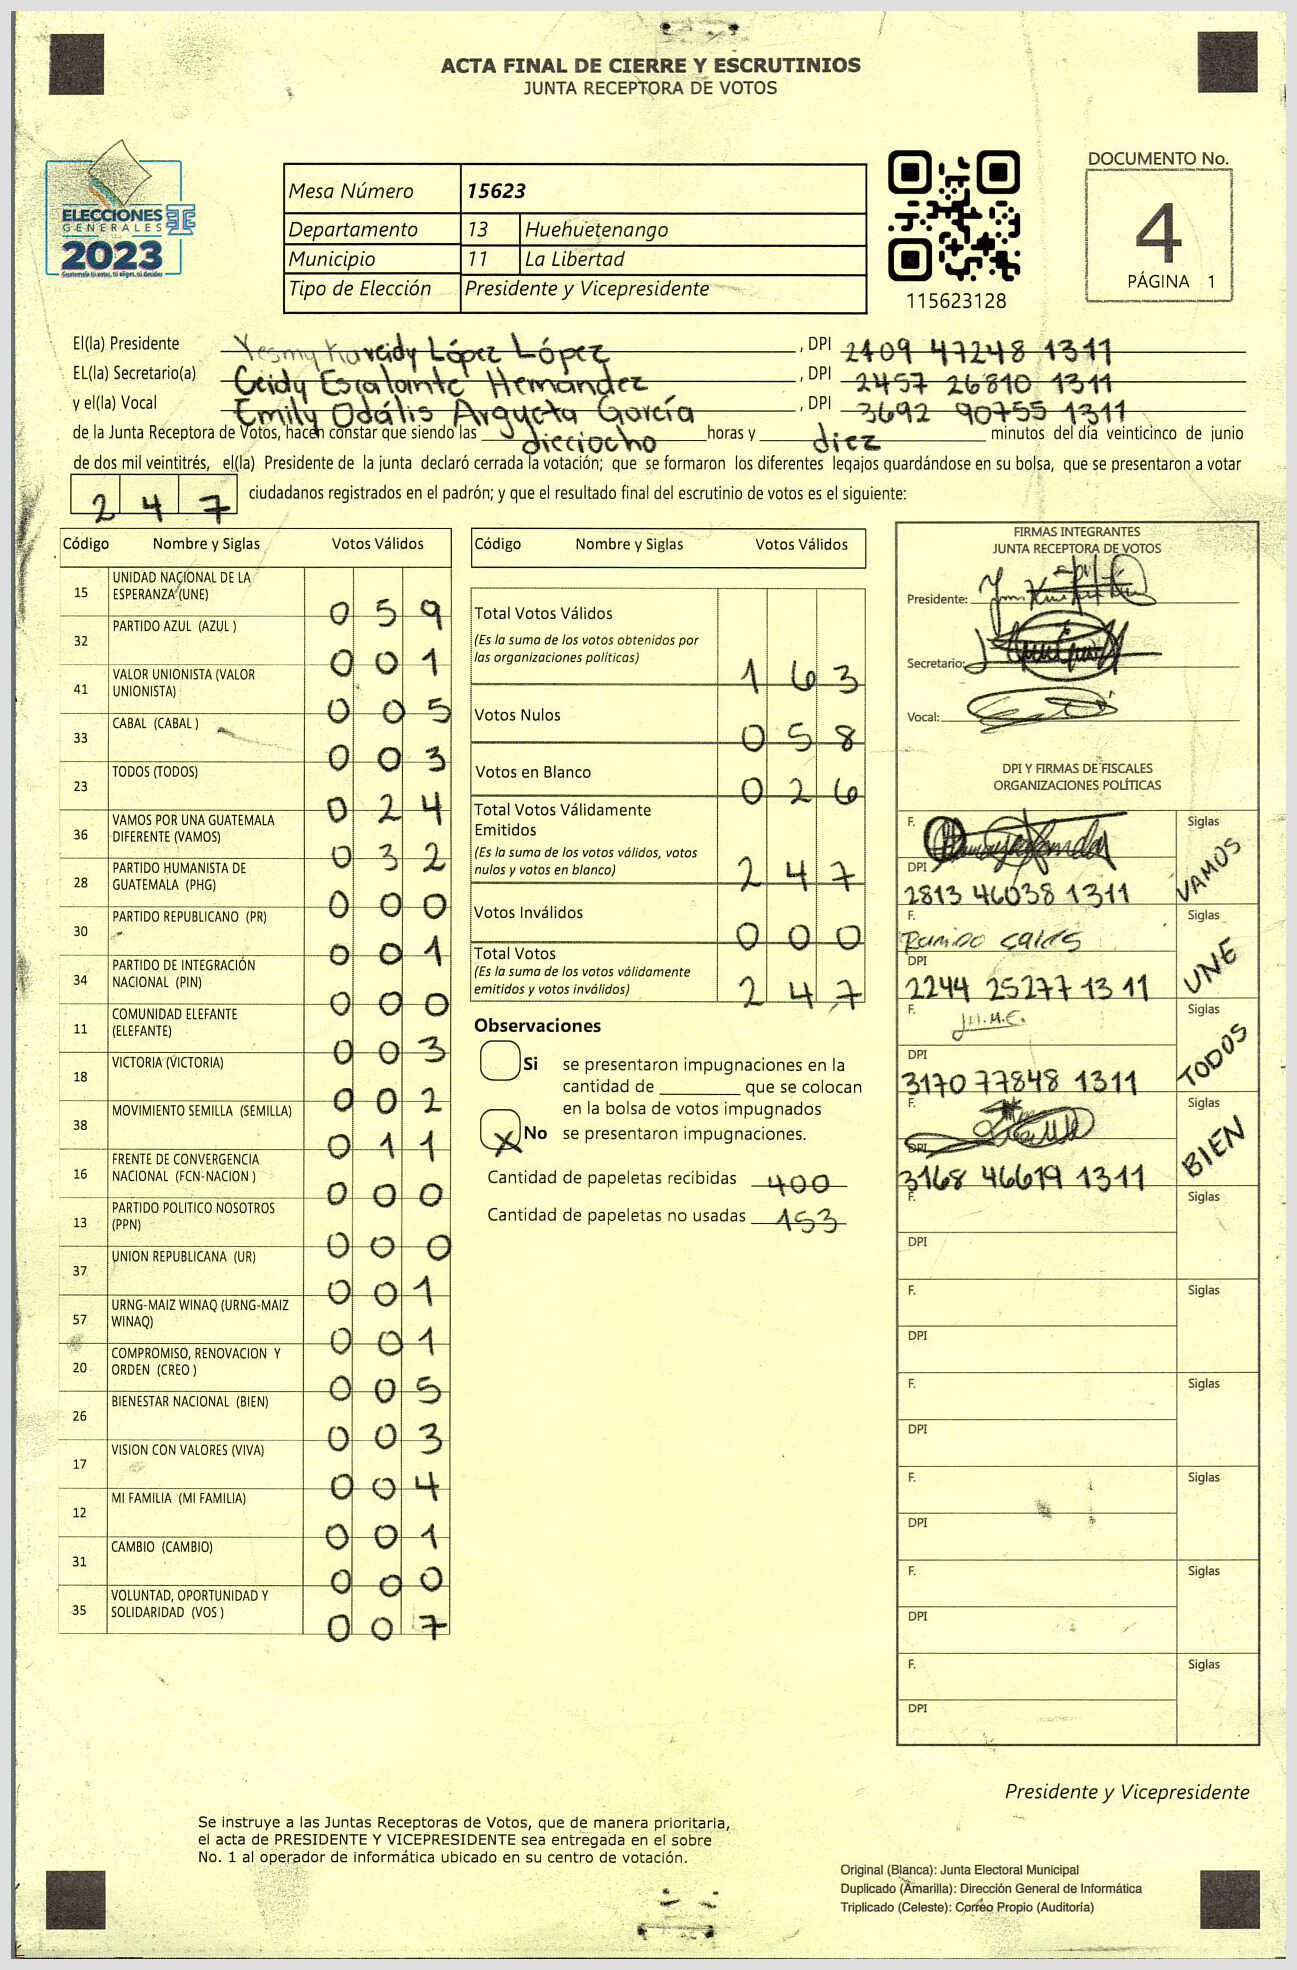 ACTA FINAL DE CIERRE Y ESCRUTINIOS
JUNTA RECEPTORA DE VOTOS
ELECCIONES
GENERALES
2023
Mesa Número 15623
Departamento 13 Huehuetenango
Municipio 11 La Libertad
Tipo de Elección Presidente y Vicepresidente
115623128
DOCUMENTO No.
4
PÁGINA 1
El(la) Presidente López López , DPI 2109 47248 1311
EL(la) Secretario(a) Ceidy Escalante Hernández , DPI 2457 26810 1311
y el(la) Vocal Emily Odális Argueta García , DPI 3692 90755 1311
de la Junta Receptora de Votos, hacen constar que siendo las dieciocho horas y diez minutos del día veinticinco de junio
de dos mil veintitrés, el(la) Presidente de la junta declaró cerrada la votación; que se formaron los diferentes legajos guardándose en su bolsa, que se presentaron a votar
247 ciudadanos registrados en el padrón; y que el resultado final del escrutinio de votos es el siguiente:
Código Nombre y Siglas Votos Válidos
15 UNIDAD NACIONAL DE LA
ESPERANZA (UNE) 059
32 PARTIDO AZUL (AZUL ) 001
41 VALOR UNIONISTA (VALOR
UNIONISTA) 005
33 CABAL (CABAL ) 003
23 TODOS (TODOS) 024
36 VAMOS POR UNA GUATEMALA
DIFERENTE (VAMOS) 032
28 PARTIDO HUMANISTA DE
GUATEMALA (PHG) 000
30 PARTIDO REPUBLICANO (PR) 001
34 PARTIDO DE INTEGRACIÓN
NACIONAL (PIN) 000
11 COMUNIDAD ELEFANTE
(ELEFANTE) 003
18 VICTORIA (VICTORIA) 002
38 MOVIMIENTO SEMILLA (SEMILLA) 011
16 FRENTE DE CONVERGENCIA
NACIONAL (FCN-NACION ) 000
13 PARTIDO POLITICO NOSOTROS
(PPN) 000
37 UNION REPUBLICANA (UR) 001
57 URNG-MAIZ WINAQ (URNG-MAIZ
WINAQ) 001
20 COMPROMISO, RENOVACION Y
ORDEN (CREO ) 005
26 BIENESTAR NACIONAL (BIEN) 003
17 VISION CON VALORES (VIVA) 004
12 MI FAMILIA (MI FAMILIA) 001
31 CAMBIO (CAMBIO) 000
35 VOLUNTAD, OPORTUNIDAD Y
SOLIDARIDAD (VOS ) 007
Código Nombre y Siglas Votos Válidos
Total Votos Válidos
(Es la suma de los votos obtenidos por
las organizaciones políticas) 163
Votos Nulos 058
Votos en Blanco 026
Total Votos Válidamente
Emitidos
(Es la suma de los votos válidos, votos
nulos y votos en blanco) 247
Votos Inválidos 000
Total Votos
(Es la suma de los votos válidamente
emitidos y votos inválidos) 247
Observaciones
Si se presentaron impugnaciones en la
cantidad de ________ que se colocan
en la bolsa de votos impugnados
X No se presentaron impugnaciones.
Cantidad de papeletas recibidas 400
Cantidad de papeletas no usadas 153
FIRMAS INTEGRANTES
JUNTA RECEPTORA DE VOTOS
Presidente:
Secretario:
Vocal:
DPI Y FIRMAS DE FISCALES
ORGANIZACIONES POLÍTICAS
F. Siglas
DPI VAMOS
2813 46038 1311
F. Siglas
DPI UNE
2244 25277 1311
F. J.H.M.E. Siglas
DPI TODOS
3170 77848 1311
F. Siglas
DPI BIEN
3168 46619 1311
F. Siglas
DPI
F. Siglas
DPI
F. Siglas
DPI
F. Siglas
DPI
F. Siglas
DPI
F. Siglas
DPI
Presidente y Vicepresidente
Se instruye a las Juntas Receptoras de Votos, que de manera prioritaria,
el acta de PRESIDENTE Y VICEPRESIDENTE sea entregada en el sobre
No. 1 al operador de informática ubicado en su centro de votación.
Original (Blanca): Junta Electoral Municipal
Duplicado (Amarilla): Dirección General de Informática
Triplicado (Celeste): Correo Propio (Auditoría)